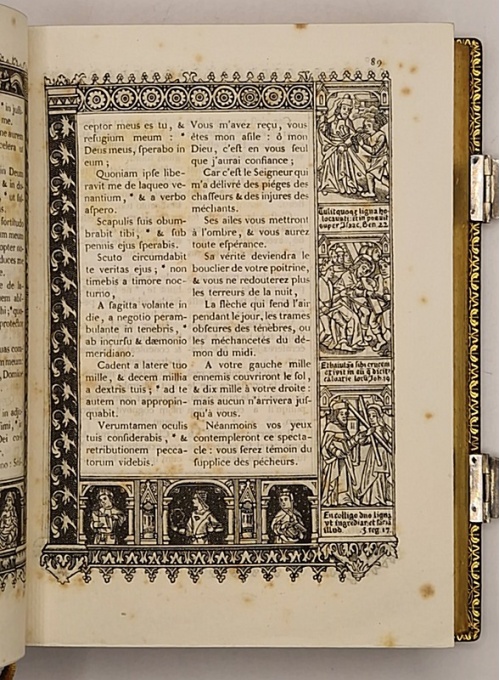 89
ceptor meus es tu, &
refugium meum : *
Deus meus, sperabo in
eum ;
Quoniam ipse libe-
ravit me de laqueo ve-
nantium, * & a verbo
aspero.
Scapulis suis obum-
brabit tibi, * & sub
pennis ejus sperabis.
Scuto circumdabit
te veritas ejus ; * non
timebis a timore noc-
turno,
A sagitta volante in
die, a negotio peram-
bulante in tenebris, *
ab incursu & dæmonio
meridiano.
Cadent a latere tuo
mille, & decem millia
a dextris tuis ; * ad te
autem non appropin-
quabit.
Verumtamen oculis
tuis considerabis, * &
retributionem pecca-
torum videbis.
Vous m'avez reçu, vous
êtes mon asile : ô mon
Dieu, c'est en vous seul
que j'aurai confiance ;
Car c'est le Seigneur qui
m'a délivré des piéges des
chasseurs & des injures des
méchants.
Ses ailes vous mettront
à l'ombre, & vous aurez
toute espérance.
Sa vérité deviendra le
bouclier de votre poitrine,
& vous ne redouterez plus
les terreurs de la nuit,
La flèche qui fend l'air
pendant le jour, les trames
obscures des ténèbres, ou
les méchancetés du dé-
mon du midi.
A votre gauche mille
ennemis couvriront le sol,
& dix mille à votre droite :
mais aucun n'arrivera jus-
qu'à vous.
Néanmoins vos yeux
contempleront ce specta-
cle : vous serez témoin du
supplice des pécheurs.
Tulit quoqz ligna ho
locausti: et imposuit
super Isaac. Gen 22
En colligo duo ligna
vt ingrediar et faciā
illud. 3 reg 17